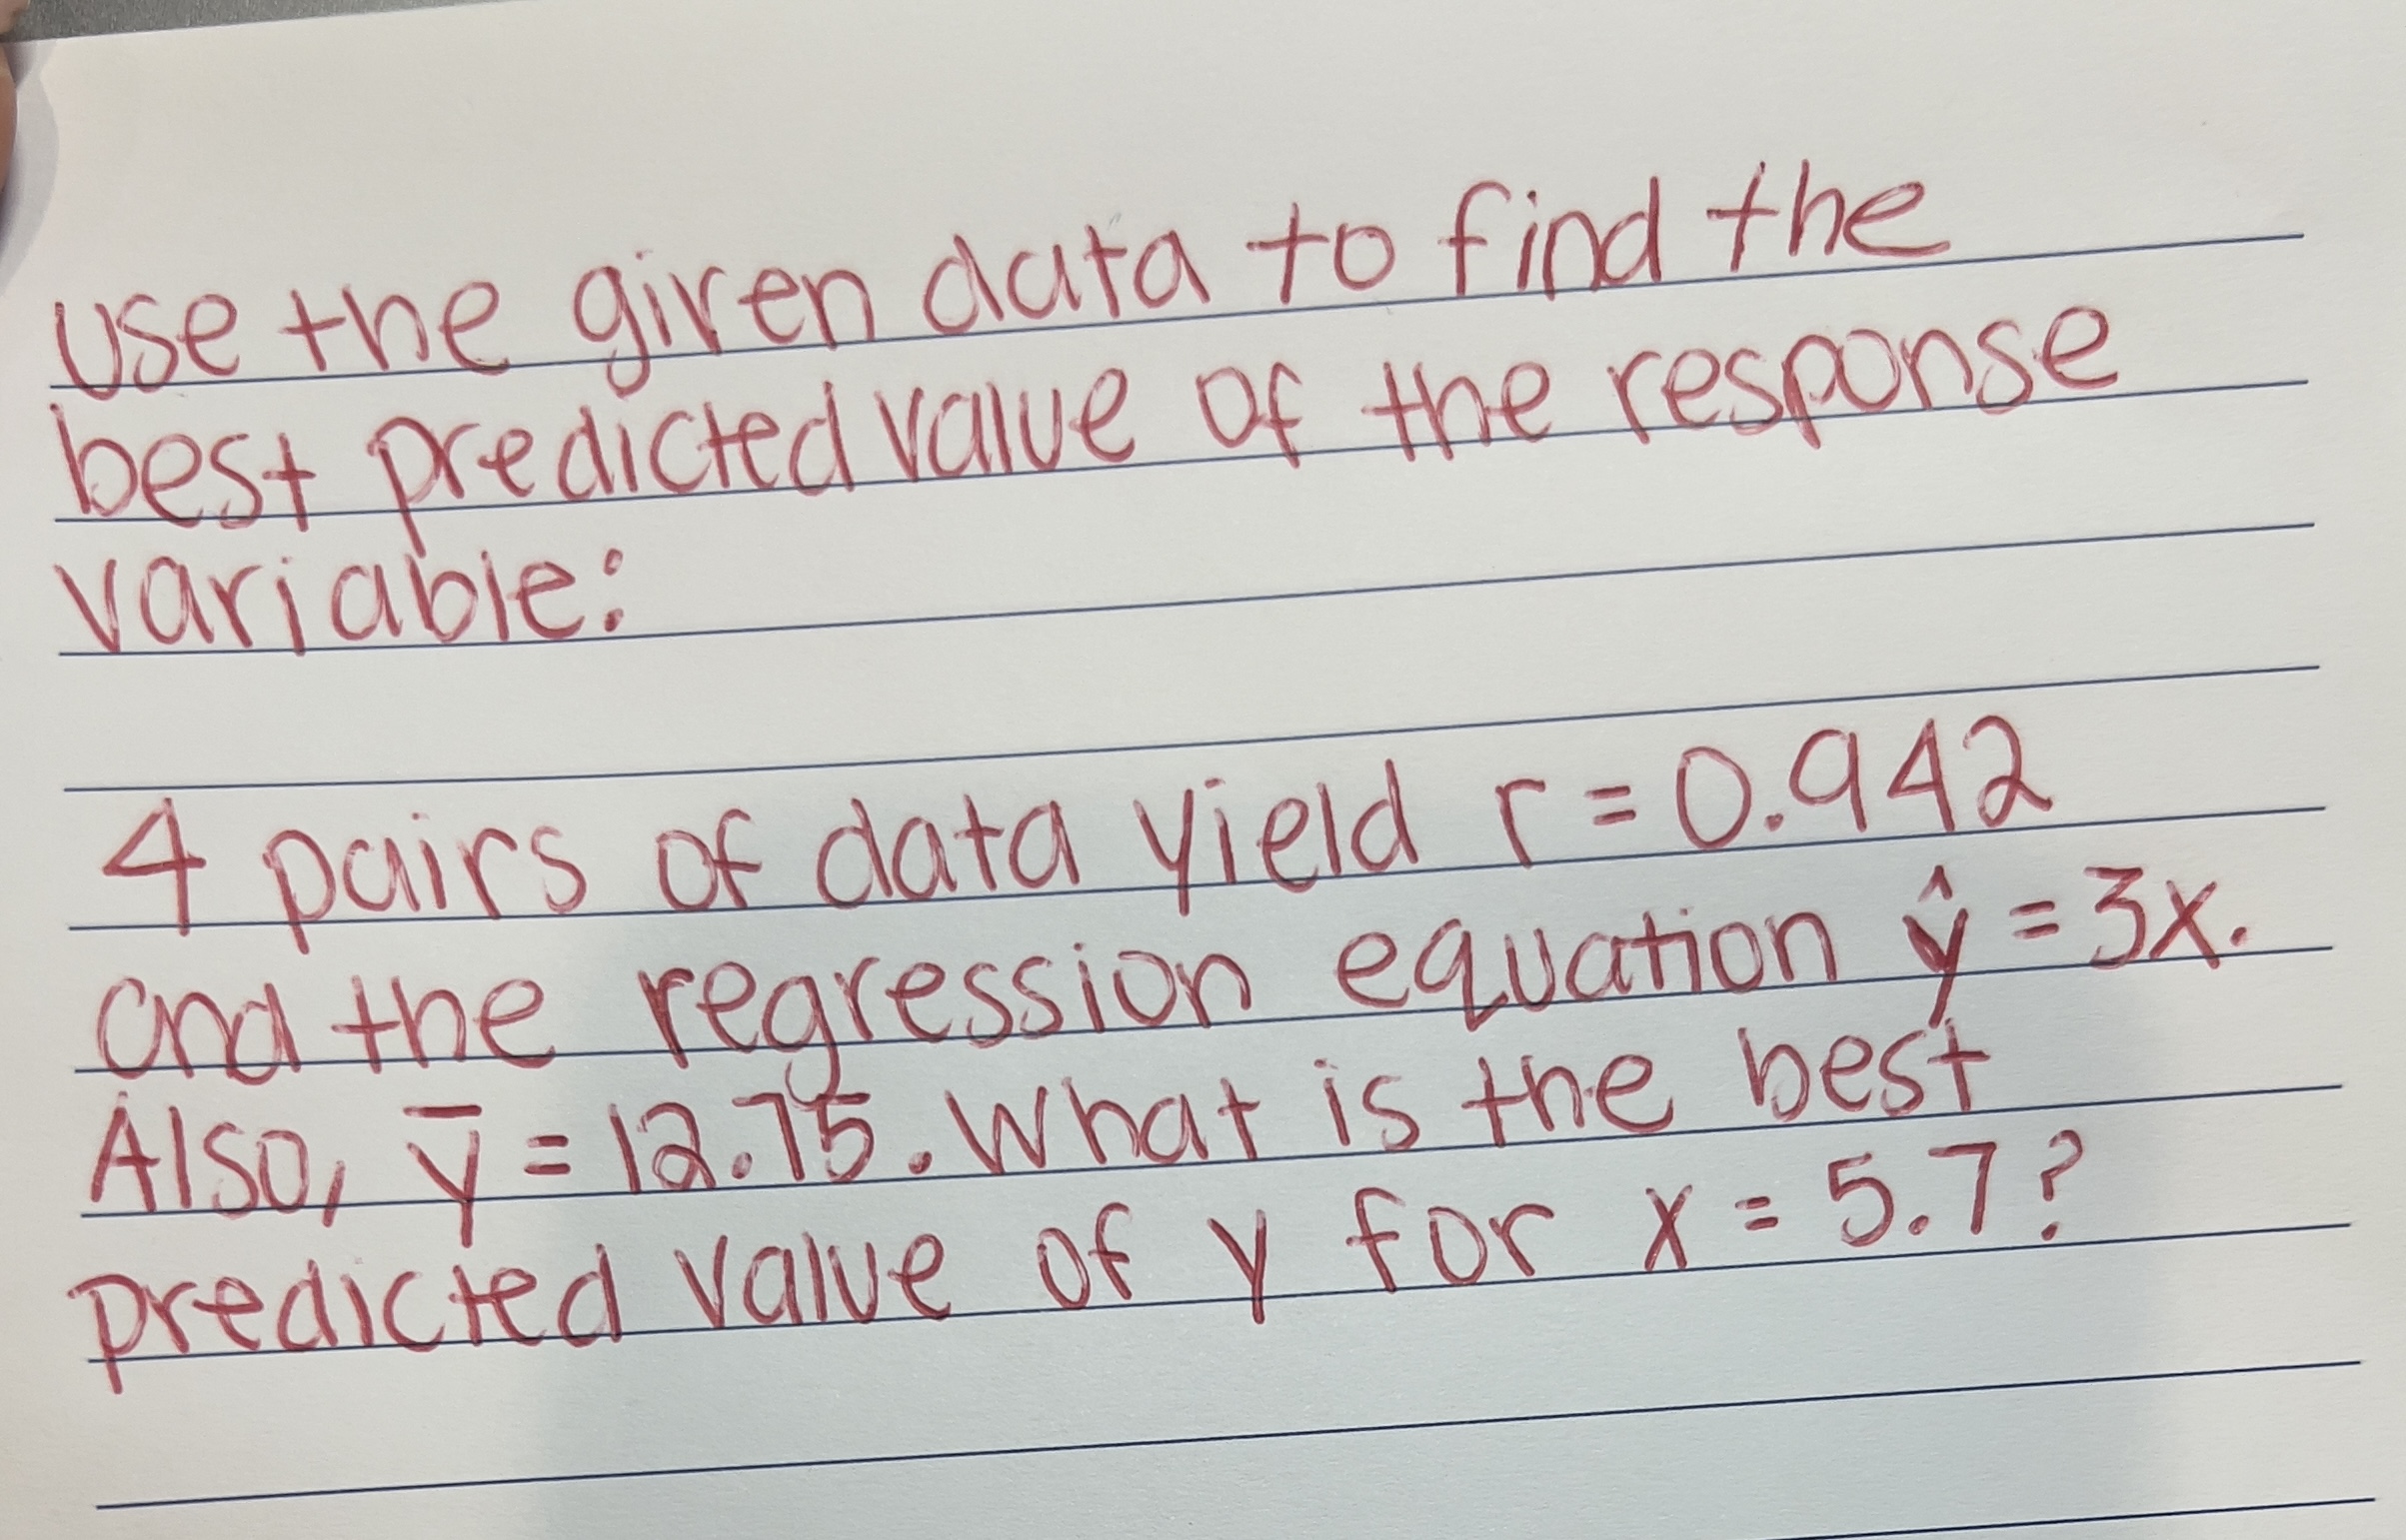 use the given data to find the
best predicted value of the response
variable:
4 pairs of data yield r = 0.942
and the regression equation ŷ = 3x.
Also, y̅ = 12.75. What is the best
predicted value of y for x = 5.7?